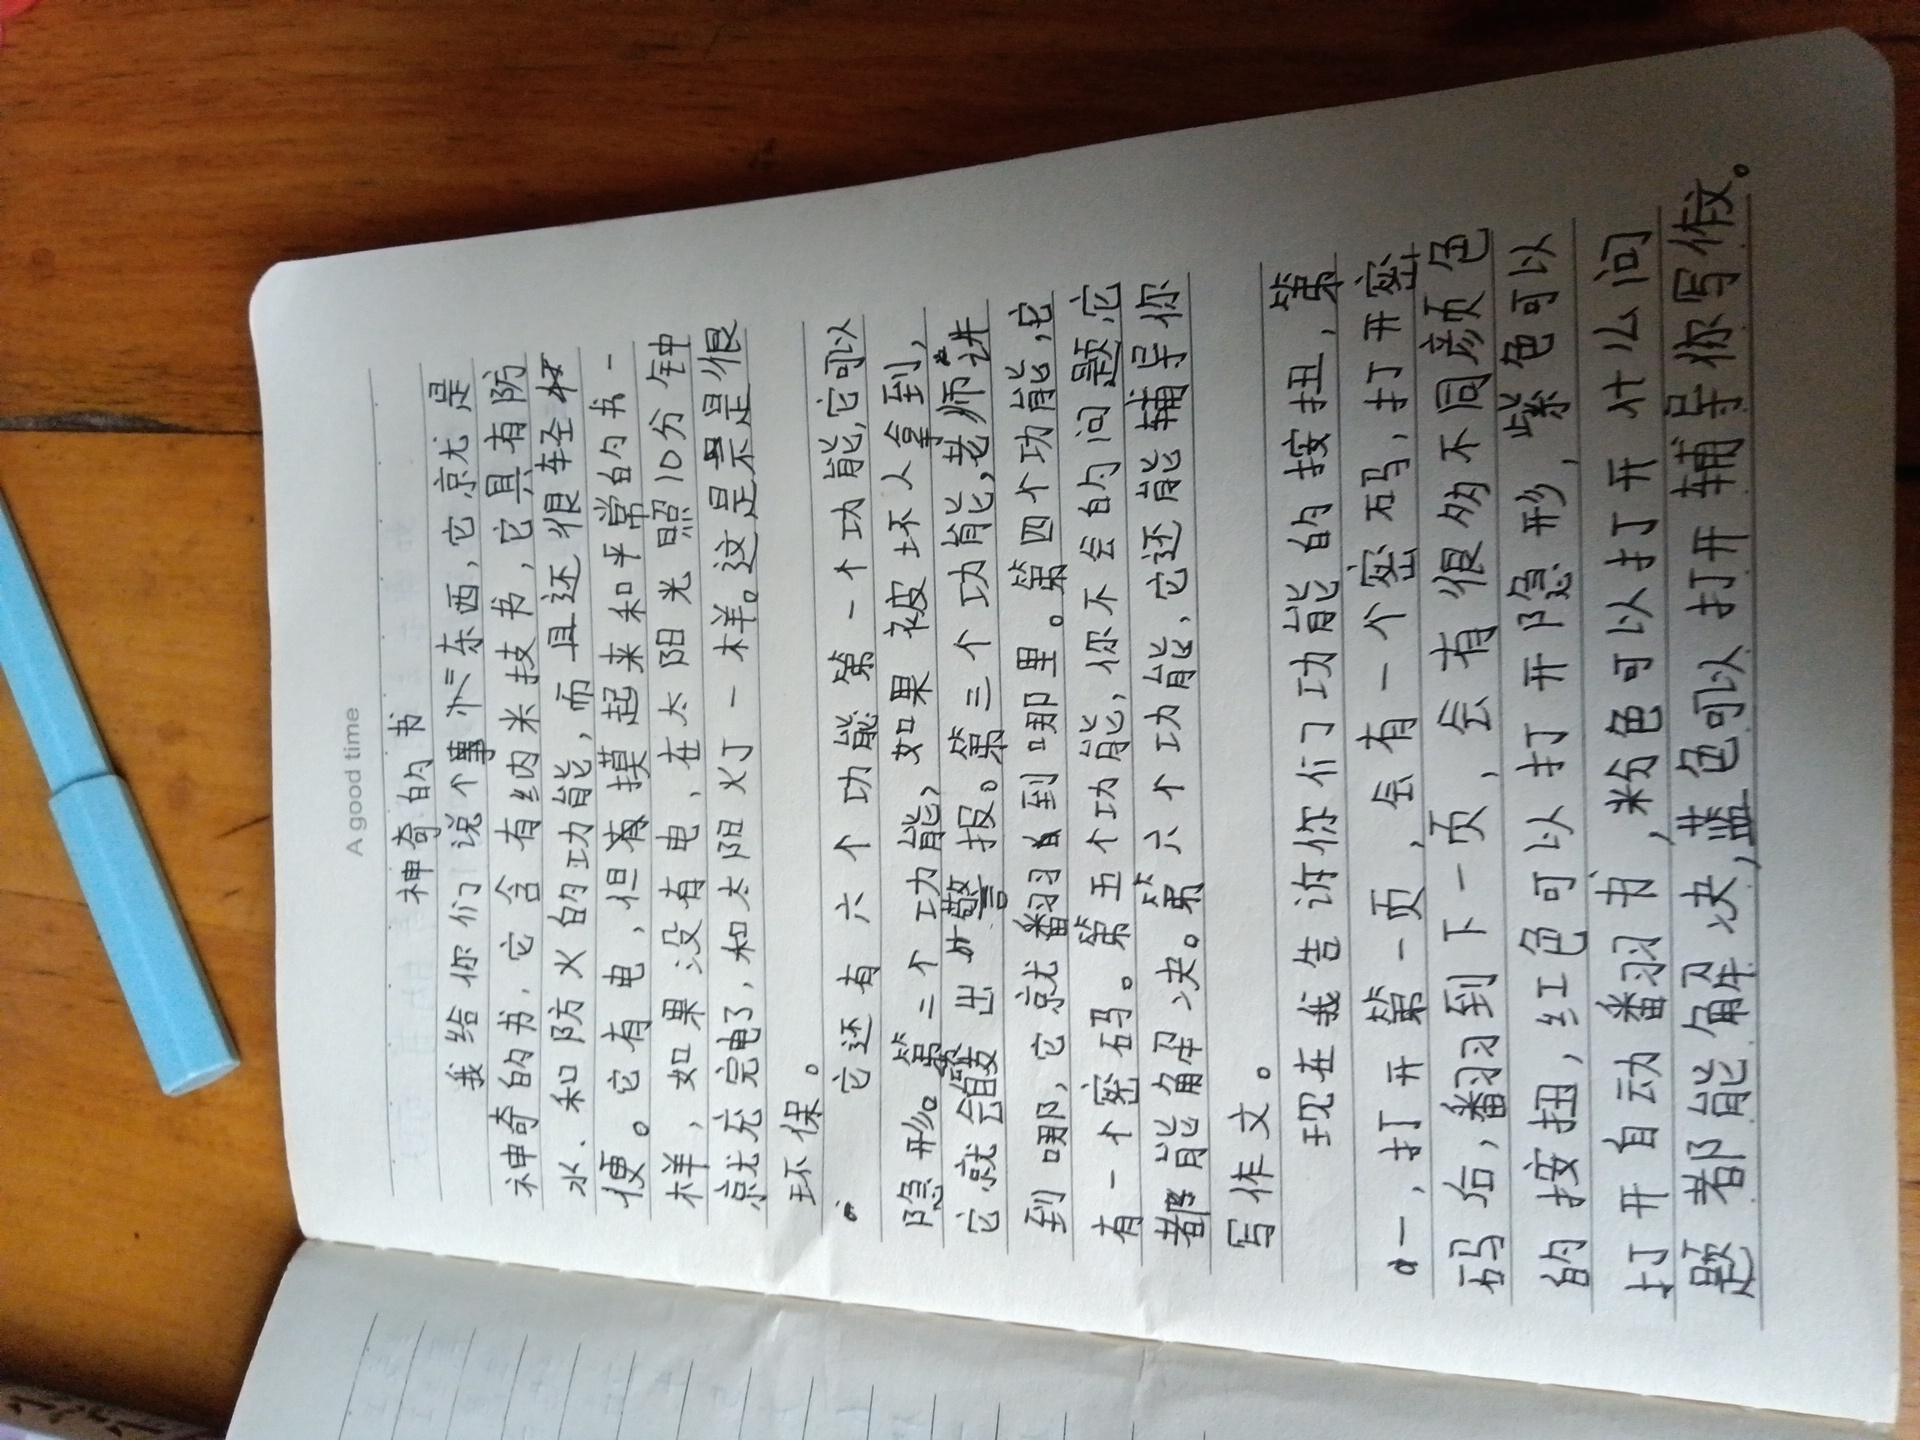 A good time
神奇的书
我给你们说个事东西,它就是
神奇的书.它含有纳米技书,它具有防
水.和防火的功能,而且还很轻
便。它有电,但摸起来和平常的书一
样,如果没有电,在太阳光照10分钟
就充完电了,和太阳灯一样。这是不是很
环保。
它还有六个功能第一个功能,它可以
隐形。第二个功能,如果被坏人拿到,
它就会出警报。第三个功能,老师讲
到哪,它就翻到哪里。第四个功能,它
有一个密码。第五个功能,你不会的问题,它
都能解决。第六个功能,它还能辅导你
写作文。
现在我告诉你们功能的按扭,第
一,打开第一页,会有一个密码,打开密
码后,翻到下一页,会有很多不同颜色
的按扭,红色可以打开隐形,紫色可以
打开自动翻书,粉色可以打开什么问
题都能解决,蓝色可以打开辅导你写作文。